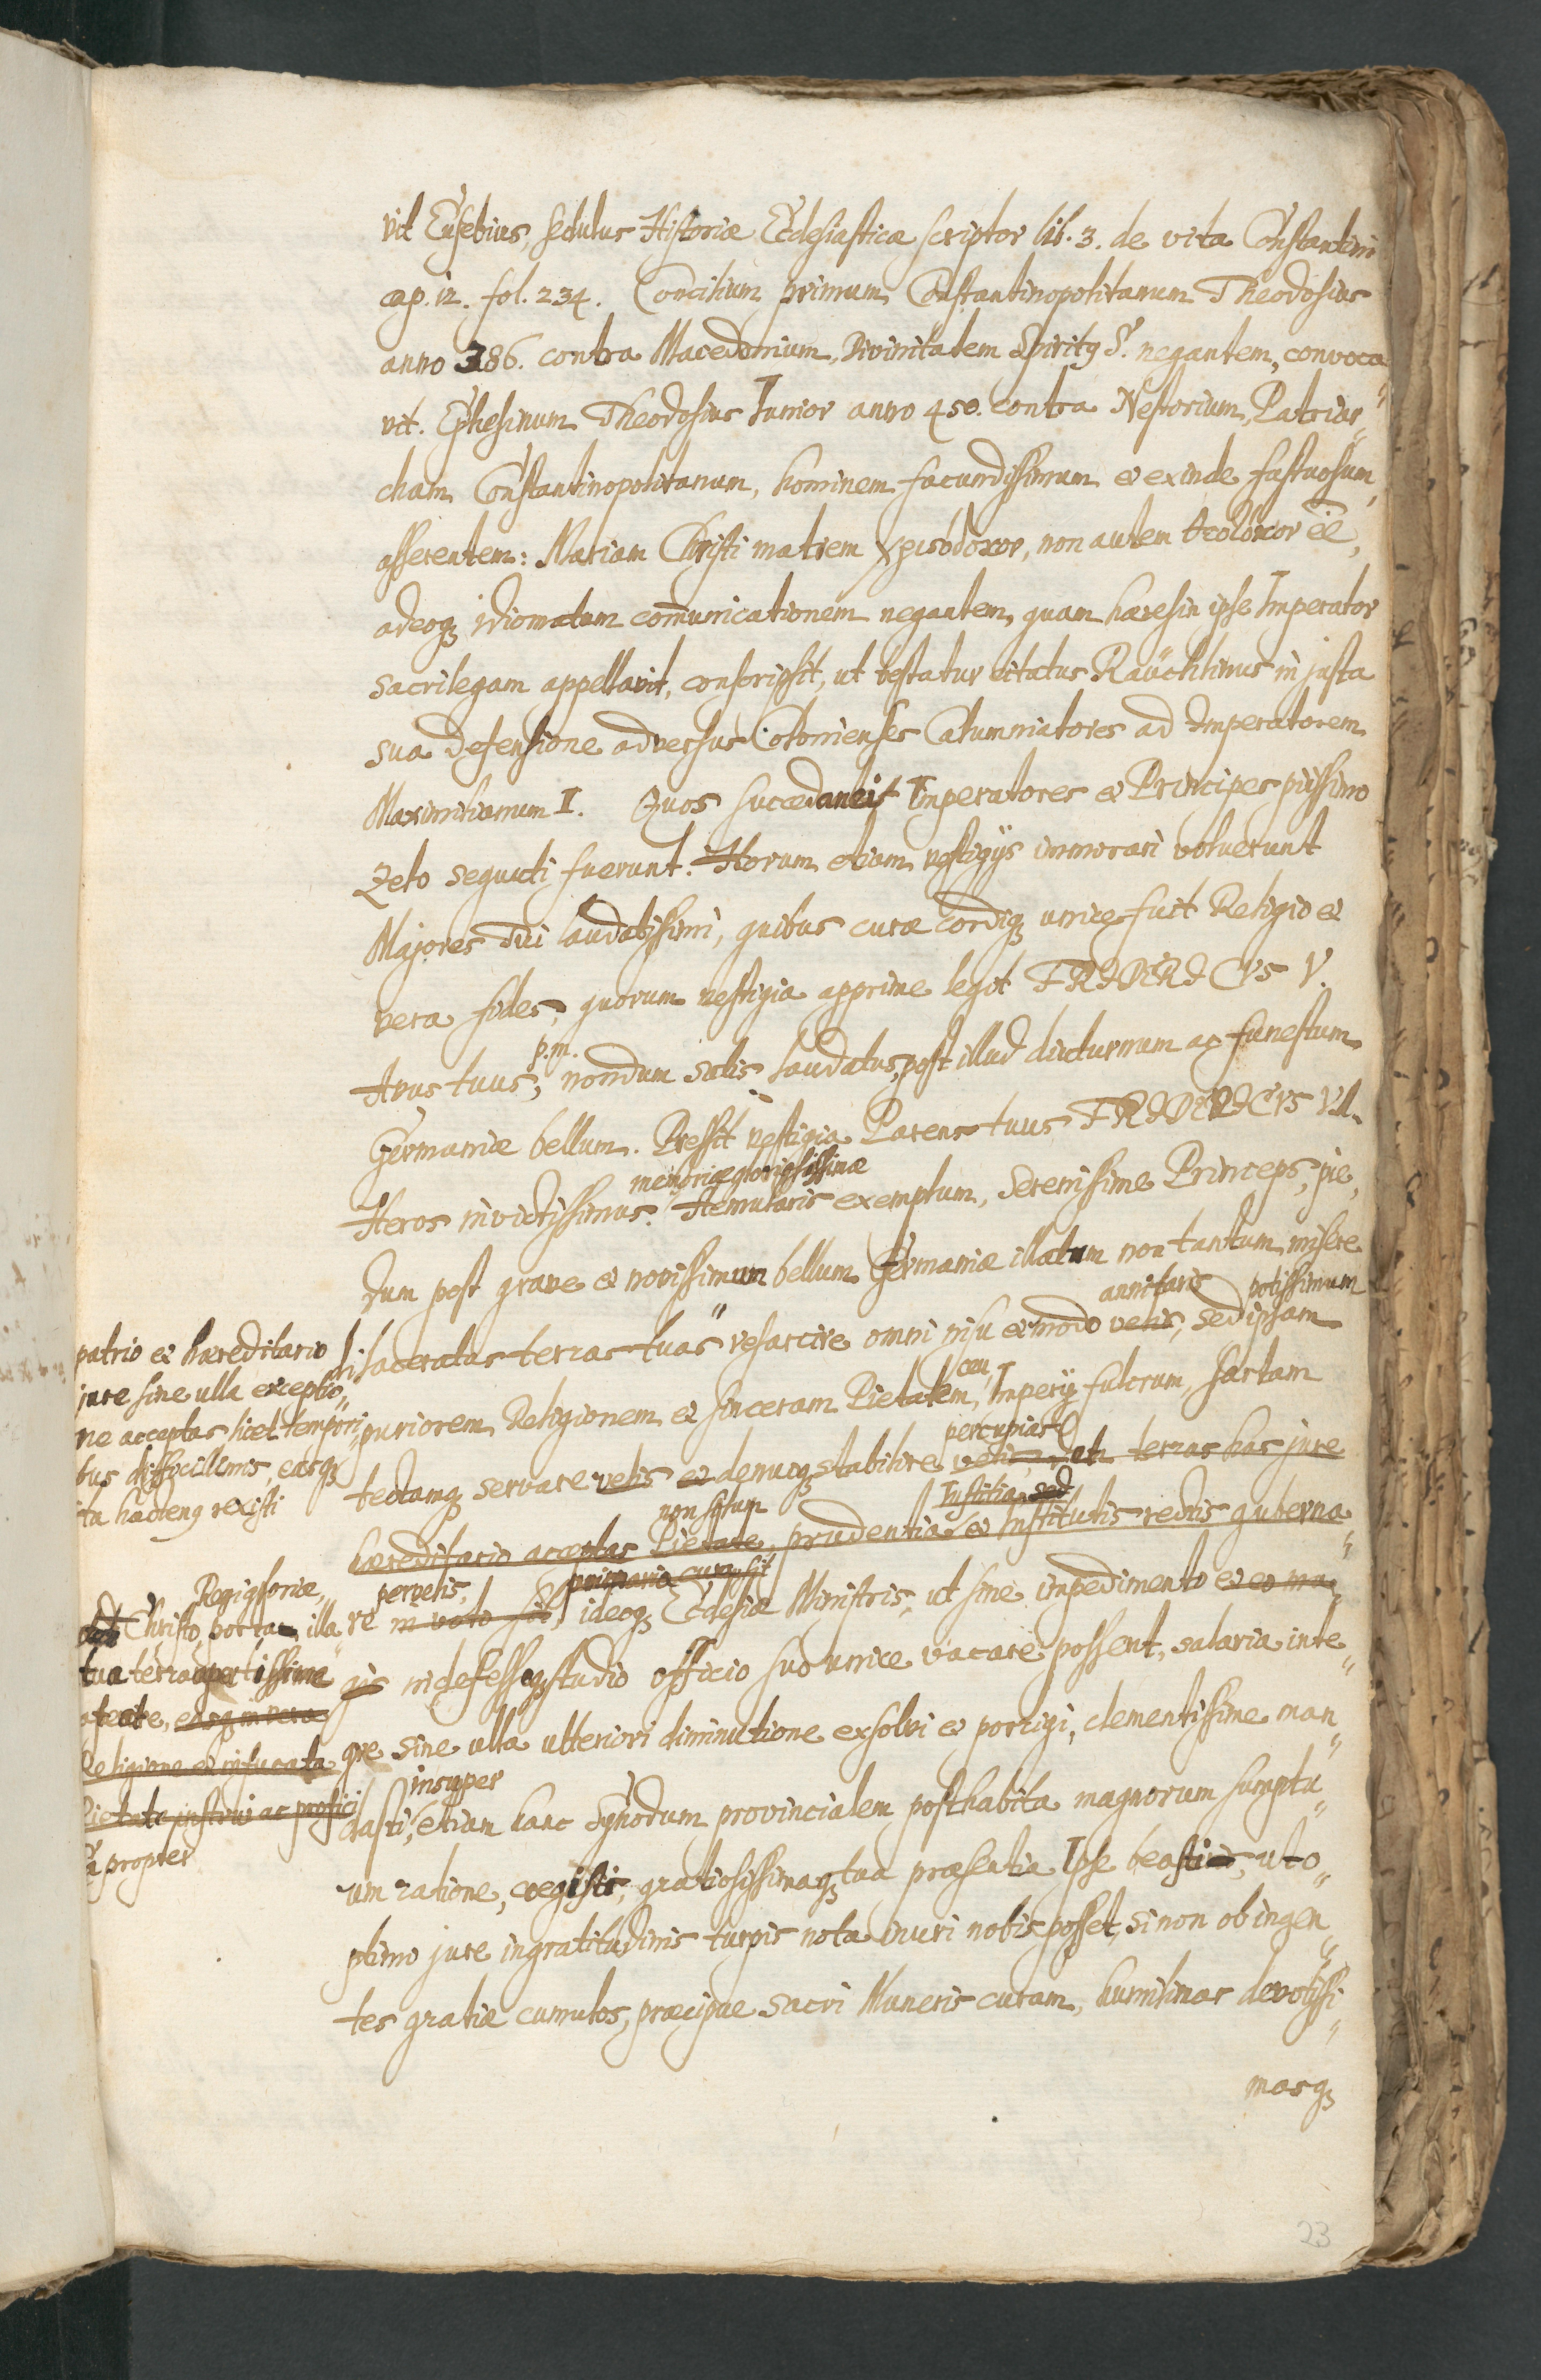 vit Eusebius, sedulus Historiæ Ecclesiasticæ scriptor lib. 3. de vita Constantini
cap. 12. fol. 234. Concilium primum Constantinopolitanum Theodosius
anno 386. contra Macedonium, Divinitatem Spiritq S. negantem, convoca„
vit. Ephesinum Theodosius Iunior anno 450. contra Nestorium, Patriar„
cham Constantinopolitanum, hominem facundissimum et exinde fastuosum,
asserentem: Mariam Christi matrem χριστοτόκον, non autem θεοτόκον ee͞,
adeoq idiomatum com̄unicationem negantem, quam hæresin ipse Imperator
sacrilegam appellavit, conscripsit, ut testatur citatus Räuchlinus in justa
sua defensione adversus Colonienses Calumniatores ad Imperatorem
Maximilianum I. Quos succedanei Imperatores et Principes piissimo
Zelo sequuti fuerunt. Horum etiam vestigijs immorari voluerunt
Majores Tui laudatissimi, quibus curæ cordiq unice fuit Religio et
vera fides, quorum vestigia apprime legit FRIDERICVS V.
p.m.
Avus tuus, nondum satis laudatus, post illud diuturnum ac funestum
Germaniæ bellum. Pressit vestigia Parens tuus FRIDERICVS VII.
memoriæ gloriosissimæ
Heros invictissimus. Aemularis exemplum, Serenissime Princeps, pie,
dum post grave et novissimum bellum Germaniæ illatum non tantum misere
annitaris potissimum
dilaceratas terras tuas" resarcire omni nisu et modo velis, sed ipsam
ceu
puriorem Religionem et sinceram Pietatem, Imperij fulcrum, sartam
percupias
tectamq servare velis et denuoq stabilire velis, terras has jure
non solum Iustitia, sed
hæreditario acceptas Pietate, prudentia et Institutis rectis guberna„
pervelis, primaria cura sit
re in voto sit, ideoq Ecclesiæ Ministris, ut sine impedimento et eo ma„
gis indefessoq studio officio suo unice vacare possent, salaria inte„
gre sine ulla ulteriori diminutione exsolvi et porrigi, clementissime man„
insuper
dasti, etiam hanc Synodum provincialem posthabita magnorum sumptu„
um ratione, coegisti, gratiosissimaq tua præsentia Ipse beasti, ut o„
ptimo jure ingratitudinis turpis nota inuri nobis posset, si non ob ingen„
tes gratiæ cumulos, præcipue sacri Muneris curam, humilimas devotissi„
masq
patrio et hæreditario
jure sine ulla exceptio„
ne acceptas licet tempori„
bus difficillimis, easq
ita hacteng rexisti
Christo, porta illa
tua terra apertissima
easq in vera
Religione et infucata
Pietate instrui ac
propter
23